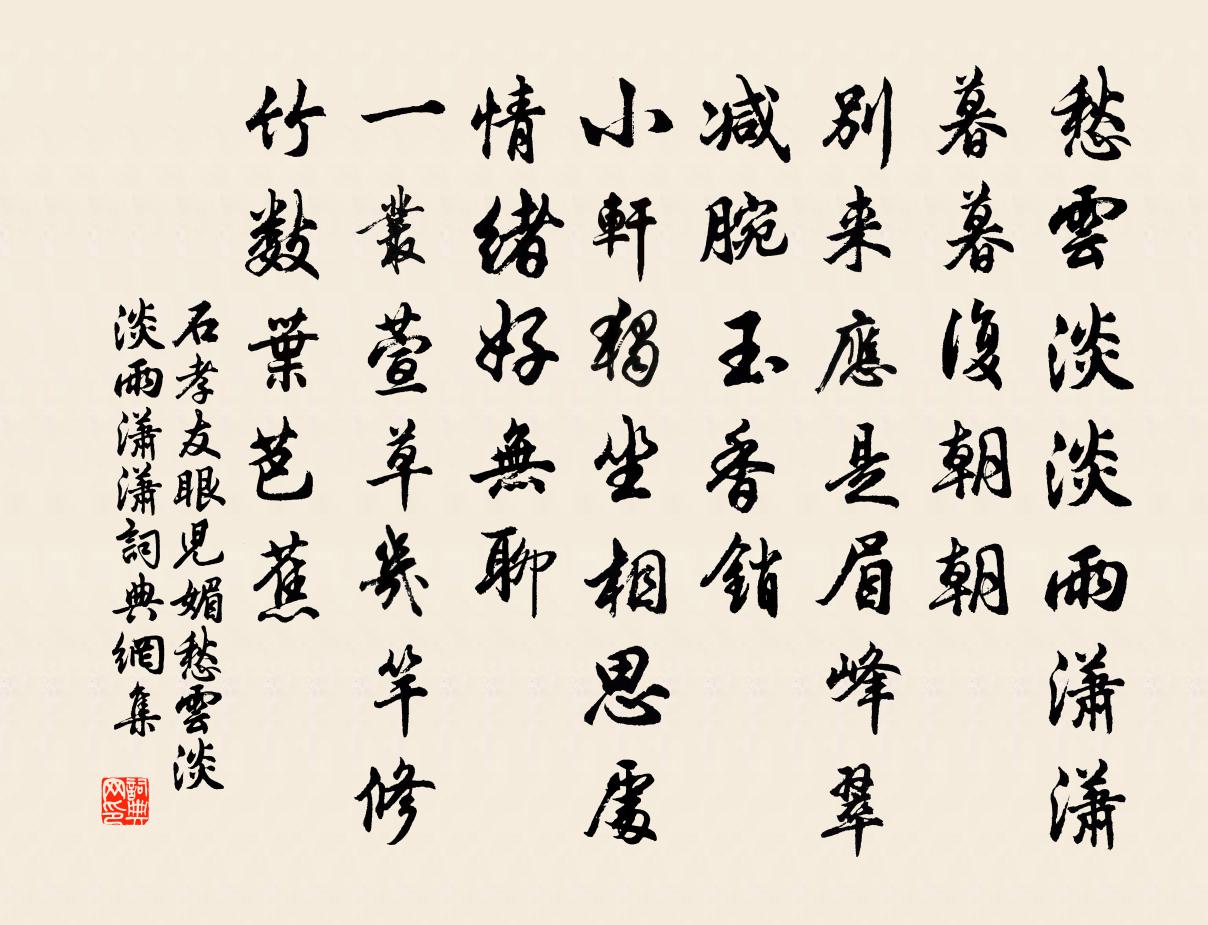 愁雲淡淡雨瀟瀟
暮暮復朝朝
別来應是眉峰翠
減腕玉香銷
小軒獨坐相思處
情緒好無聊
一叢萱草幾竿修
竹數葉芭蕉
石孝友眼兒媚愁雲淡
淡雨瀟瀟詞典網集
詞典
网印